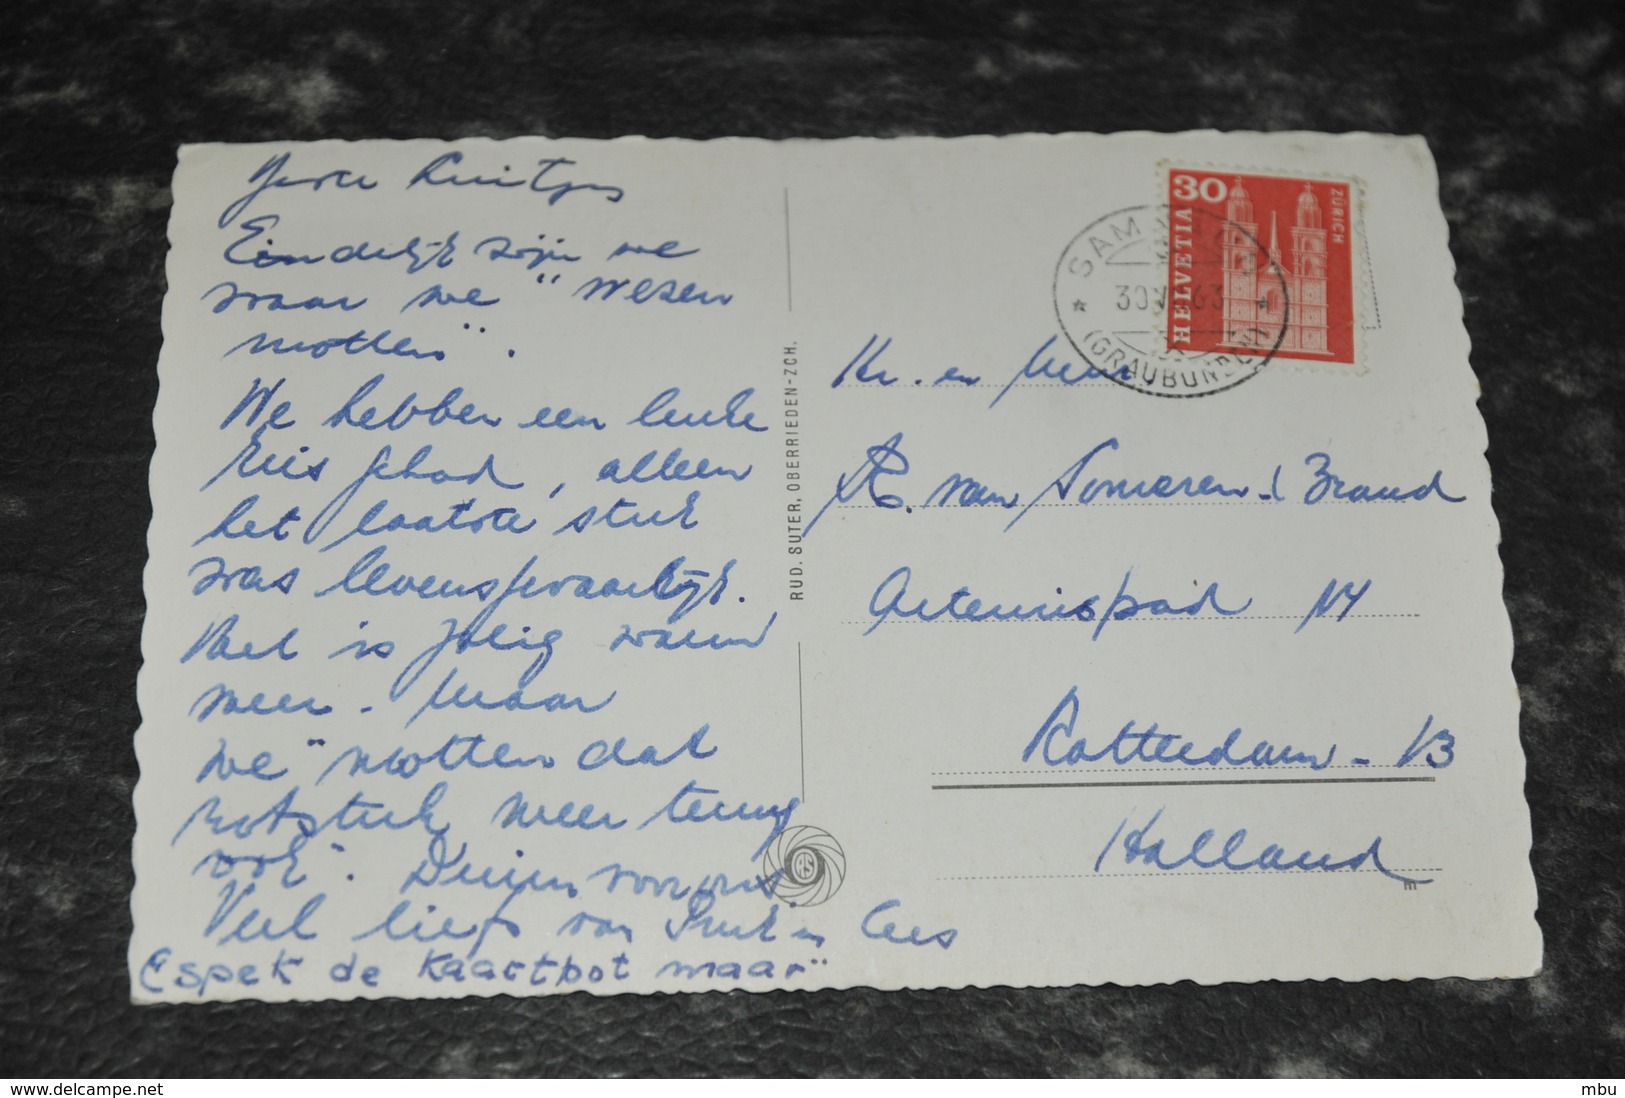 Eindelijk zijn we
waar we "wezen
motten".
We hebben een leuke
reis gehad, alleen
het laatste stuk
was levensgevaarlijk.
Het is jolig warm
weer. Maar
we "motten dat
rotstuk weer terug
ook".
Veel liefs van Puck en Cees
Espek de Kaartbot maar"
RUD. SUTER, OBERRIEDEN-ZCH.
RS
30
HELVETIA
ZÜRICH
SAMNAUN
30.VI.63
(GRAUBÜNDEN)
Hr. en Mevr.
A.C. van Someren-Brand
Artemispad 14
Rotterdam-13
Holland
E
delcampe.net
mbu